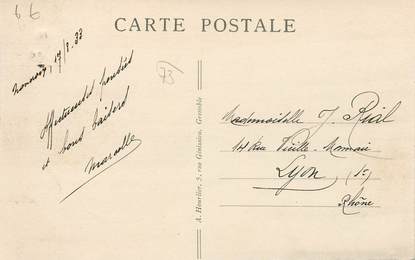 66
CARTE POSTALE
17/8.33
73
Affectueuses pensées
et bons baisers
Marcelle
A. Hourlier, 5, rue Génissieu, Grenoble
Mademoiselle J. Rial
14 Rue Vieille-Monnaie
Lyon (1e)
Rhône